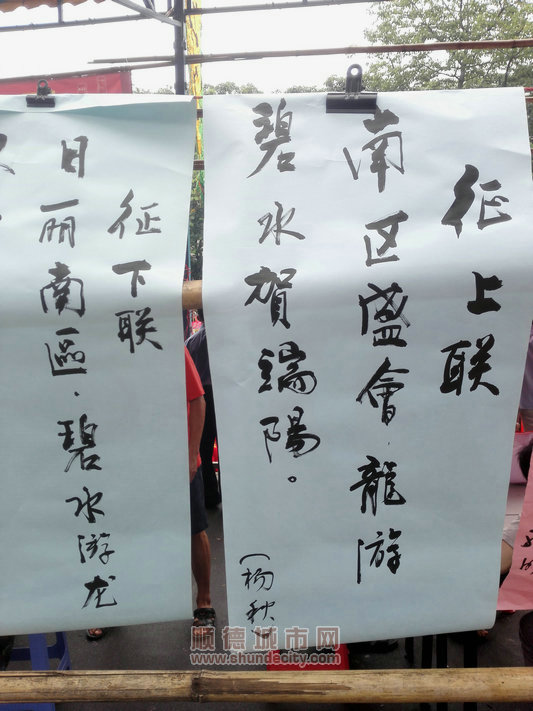 征上联
南区盛會，龍游
碧水賀端陽。
（杨秋）
征下联
日丽南區，碧水游龙
顺德城市网
www.shundecity.com